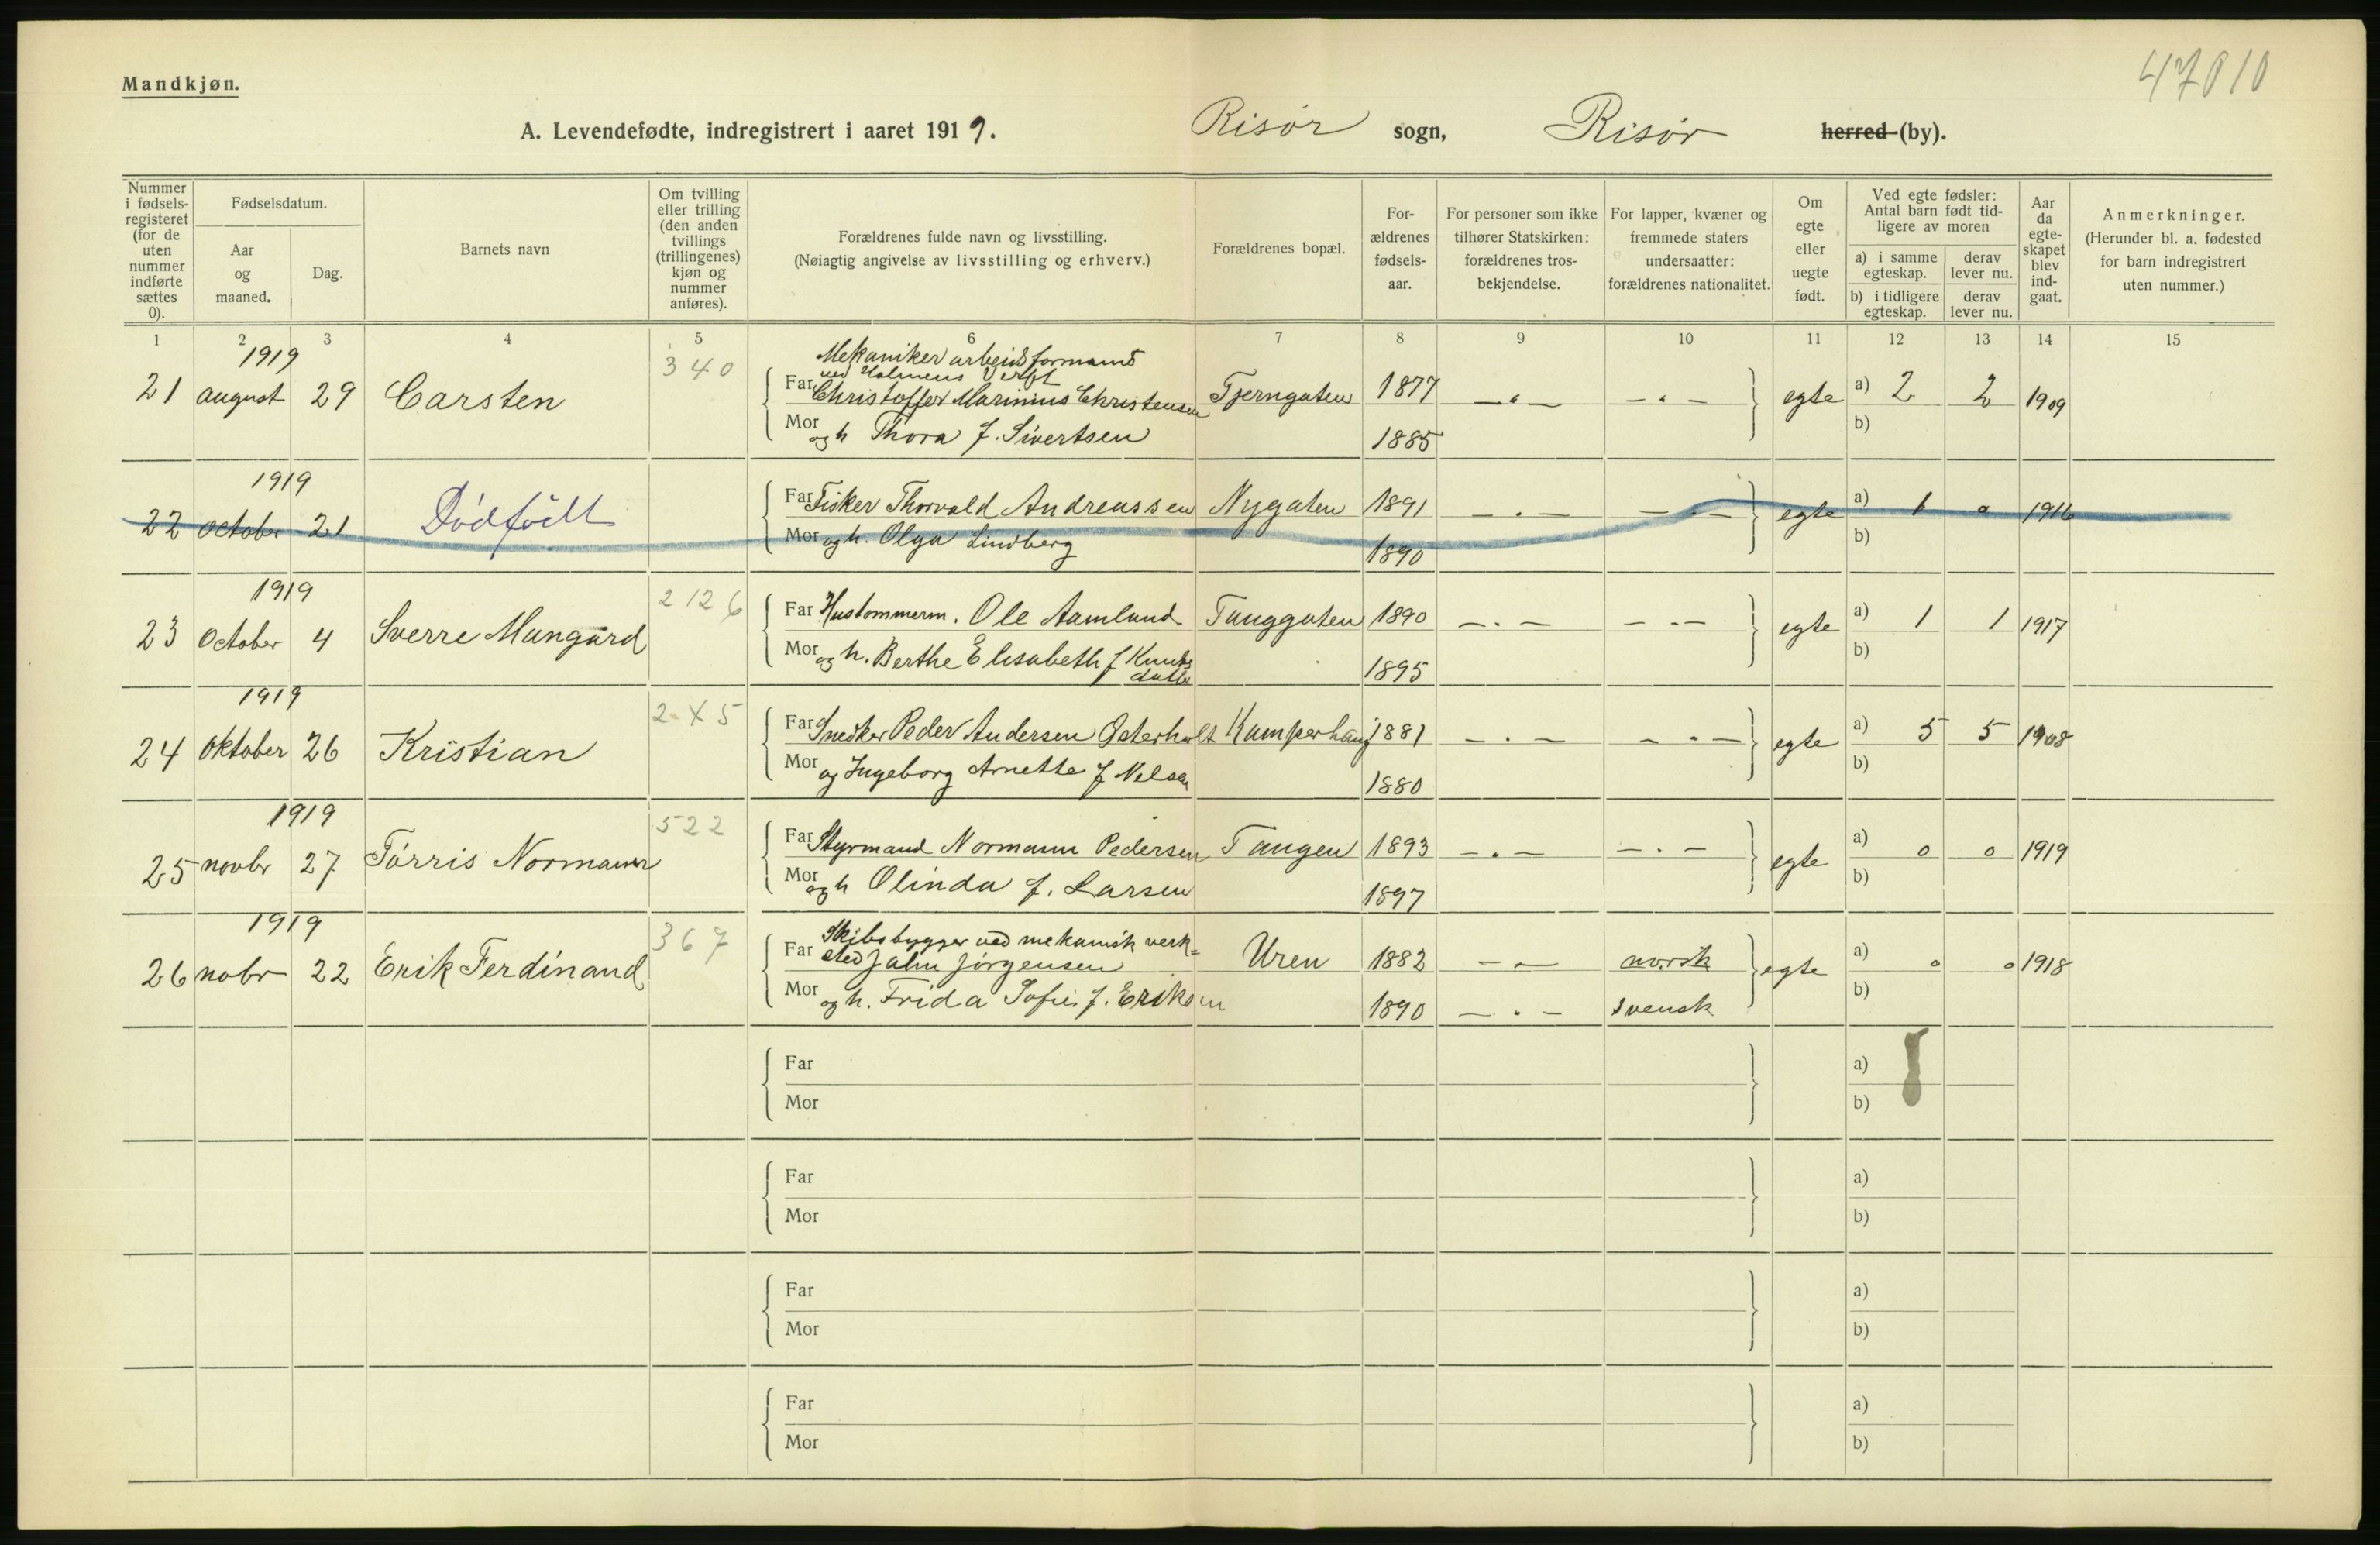 47010
Mandkjøn.
A. Levendefødte, indregistrert i aaret 1919. Risør sogn, Risør herred (by).
Nummer i fødsels-registeret (for de uten nummer indførte sættes 0).
Fødselsdatum.
Aar og maaned.
Dag.
Barnets navn
Om tvilling eller trilling (den anden tvillings (trillingenes) kjøn og nummer anføres).
Forældrenes fulde navn og livsstilling.
(Nøiagtig angivelse av livsstilling og erhverv.)
Forældrenes bopæl.
For-ældrenes fødsels-aar.
For personer som ikke tilhører Statskirken: forældrenes tros-bekjendelse.
For lapper, kvæner og fremmede staters undersaatter: forældrenes nationalitet.
Om egte eller uegte født.
Ved egte fødsler: Antal barn født tid-ligere av moren
a) i samme egteskap.
derav lever nu.
b) i tidligere egteskap.
derav lever nu.
Aar da egte-skapet blev ind-gaat.
Anmerkninger.
(Herunder bl. a. fødested for barn indregistrert uten nummer.)
1 2 3 4 5 6 7 8 9 10 11 12 13 14 15
1919 340 Mekaniker arbeidsformand
ved Holmens Verft
21 august 29 Carsten Far Christoffer Marinius Christensen Tjerngaten 1877 — . — — . — egte a) 2 2 1909
Mor og h Thora f. Sivertsen 1885 b)
1919
22 october 21 Dödfödt Far Fisker Thorvald Andreassen Nygaten 1891 — . — — . — egte a) 1 0 1916
Mor og h. Olga Lindberg 1890 b)
1919 2126
23 October 4 Sverre Mangård Far Hustommerm. Ole Aamland Tanggaten 1890 — . — — . — egte a) 1 1 1917
Mor og h. Berthe Elisabeth f Knuds
datter 1895 b)
1919 2 X 5
24 Oktober 26 Kristian Far Snedker Peder Andersen Østerholt Kamperhaug 1881 — . — — . — egte a) 5 5 1908
Mor og Ingeborg Arnette f Nelsen 1880 b)
1919 522
25 novbr 27 Tórris Normann Far Styrmand Normann Pedersen Tangen 1893 — . — — . — egte a) 0 0 1919
Mor og h Olinda f. Larsen 1897 b)
1919 367 Skibsbygger ved mekanisk verk=
26 nobr 22 Erik Ferdinand Far sted Jahn Jörgensen Uren 1882 — — norsk egte a) 0 0 1918
Mor og h. Frida Sofie f. Eriksen 1890 — . — svensk b)
Far a)
Mor b)
Far a)
Mor b)
Far a)
Mor b)
Far a)
Mor b)